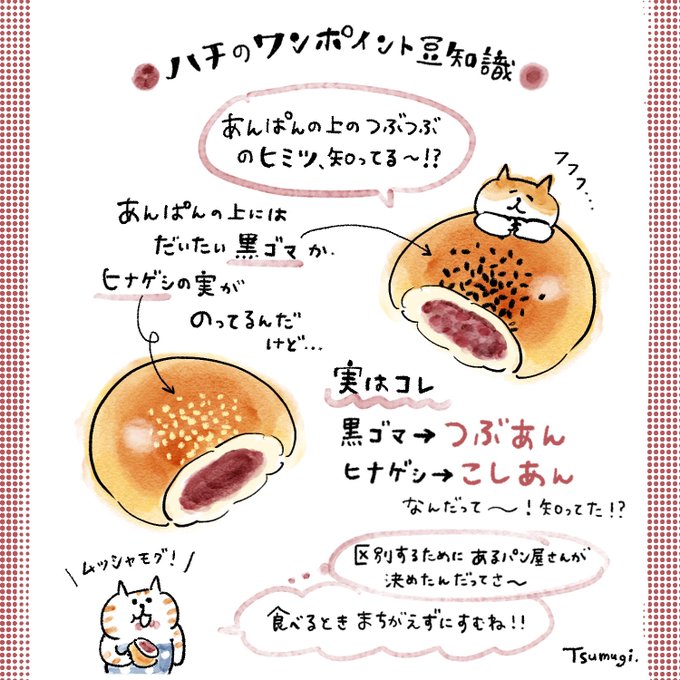 ハチのワンポイント豆知識
あんぱんの上のつぶつぶ
のヒミツ、知ってる〜!?
フフフ...
あんぱんの上には
だいたい黒ゴマか、
ヒナゲシの実が
のってるんだ
けど...
実はコレ
黒ゴマ→つぶあん
ヒナゲシ→こしあん
なんだって〜！知ってた!?
ムッシャモグ！
区別するために あるパン屋さんが
決めたんだってさ〜
食べるとき まちがえずにすむね!!
Tsumugi.